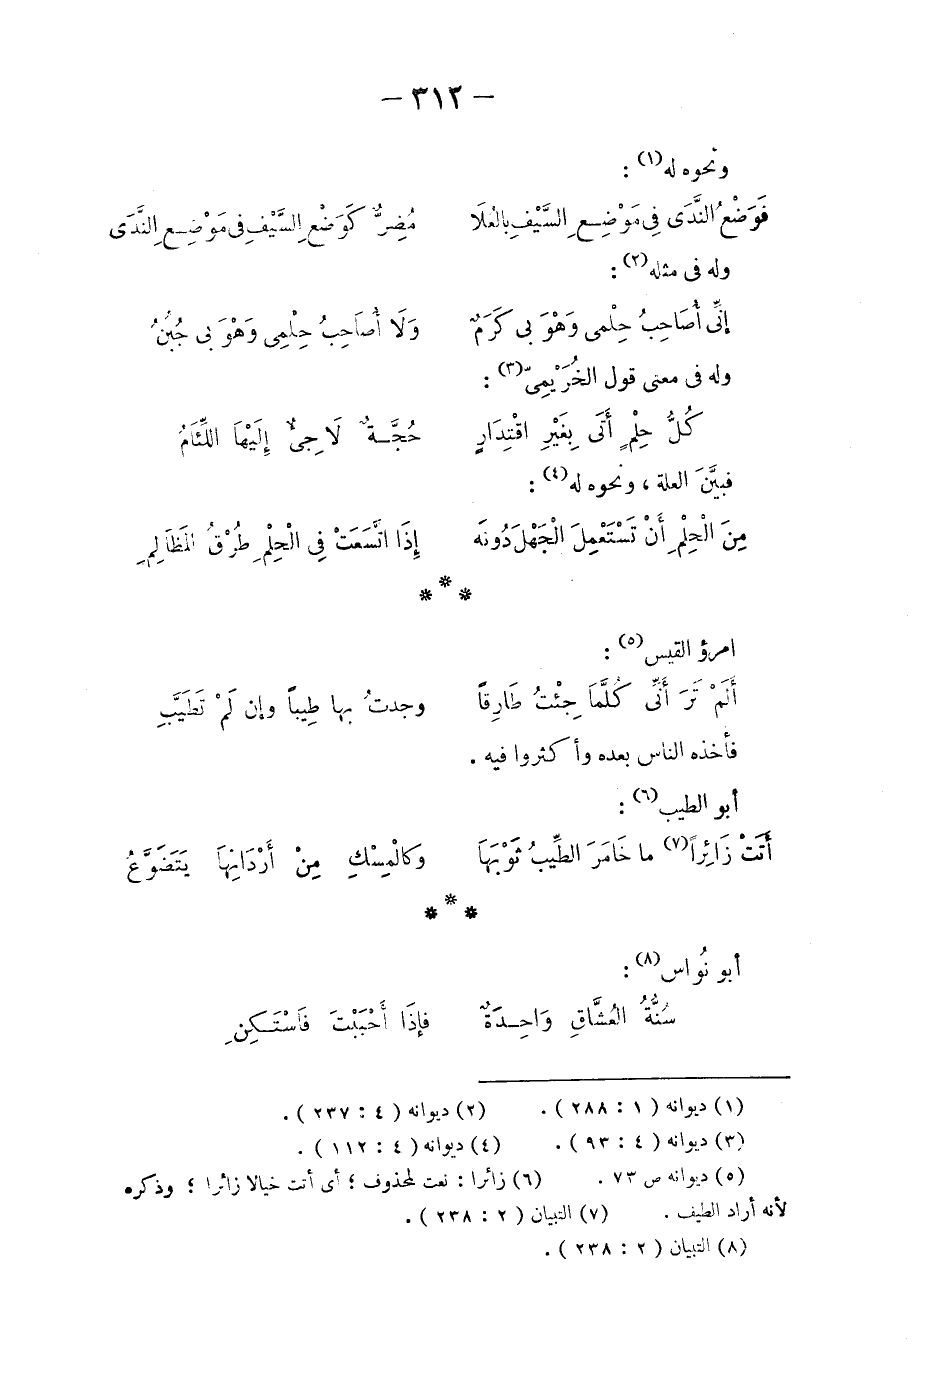 — ٣١٢ —
ونحوه له(١) :
فَوَضْعُ النَّدَى فِى مَوْضِعِ السَّيْفِ بِالعُلَا مُضِرٌّ كَوَضْعِ السَّيْفِ فِى مَوْضِعِ النَّدَى
وله فى مثله(٢) :
إنِّى أُصَاحِبُ حِلْمِى وَهْوَ بِى كَرَمٌ وَلَا أُصَاحِبُ حِلْمِى وَهْوَ بِى جُبُنُ
وله فى معنى قول الخُرَيْمِىّ(٣) :
كُلُّ حِلْمٍ أَتَى بِغَيْرِ اقْتِدَارٍ حُجَّةٌ لَاجِىٌ إِلَيْهَا اللِّئَامُ
فبيَّنَ العلة ، ونحوه له(٤) :
مِنَ الْحِلْمِ أَنْ تَسْتَعْمِلَ الْجَهْلَ دُونَه إِذَا اتَّسَعَتْ فِى الْحِلْمِ طُرْقُ المَظَالِمِ
* * *
امرؤ القيس(٥) :
أَلَمْ تَرَ أَنِّى كُلَّمَا جِئْتُ طَارِقاً وجدتُ بها طِيباً وإن لَمْ تَطَيَّبِ
فأخذه الناس بعده وأكثروا فيه .
أبو الطيب(٦) :
أَتَتْ زَائِراً(٧) ما خَامَرَ الطِّيبُ ثَوْبَهَا وَكالْمِسْكِ مِنْ أَرْدَانِهَا يَتَضَوَّعُ
* * *
أبو نُواس(٨) :
سُنَّةُ العُشَّاقِ وَاحِدَةٌ فإِذَا أَحْبَبْتَ فَاسْتَكِنِ
(١) ديوانه ( ١ : ٢٨٨ ) . (٢) ديوانه ( ٤ : ٢٣٧ ) .
(٣) ديوانه ( ٤ : ٩٣ ) . (٤) ديوانه ( ٤ : ١١٢ ) .
(٥) ديوانه ص ٧٣ . (٦) زائرا : نعت لمحذوف ؛ أى أتت خيالا زائرا ؛ وذكره
لأنه أراد الطيف . (٧) التبيان ( ٢ : ٢٣٨ ) .
(٨) التبيان ( ٢ : ٢٣٨ ) .